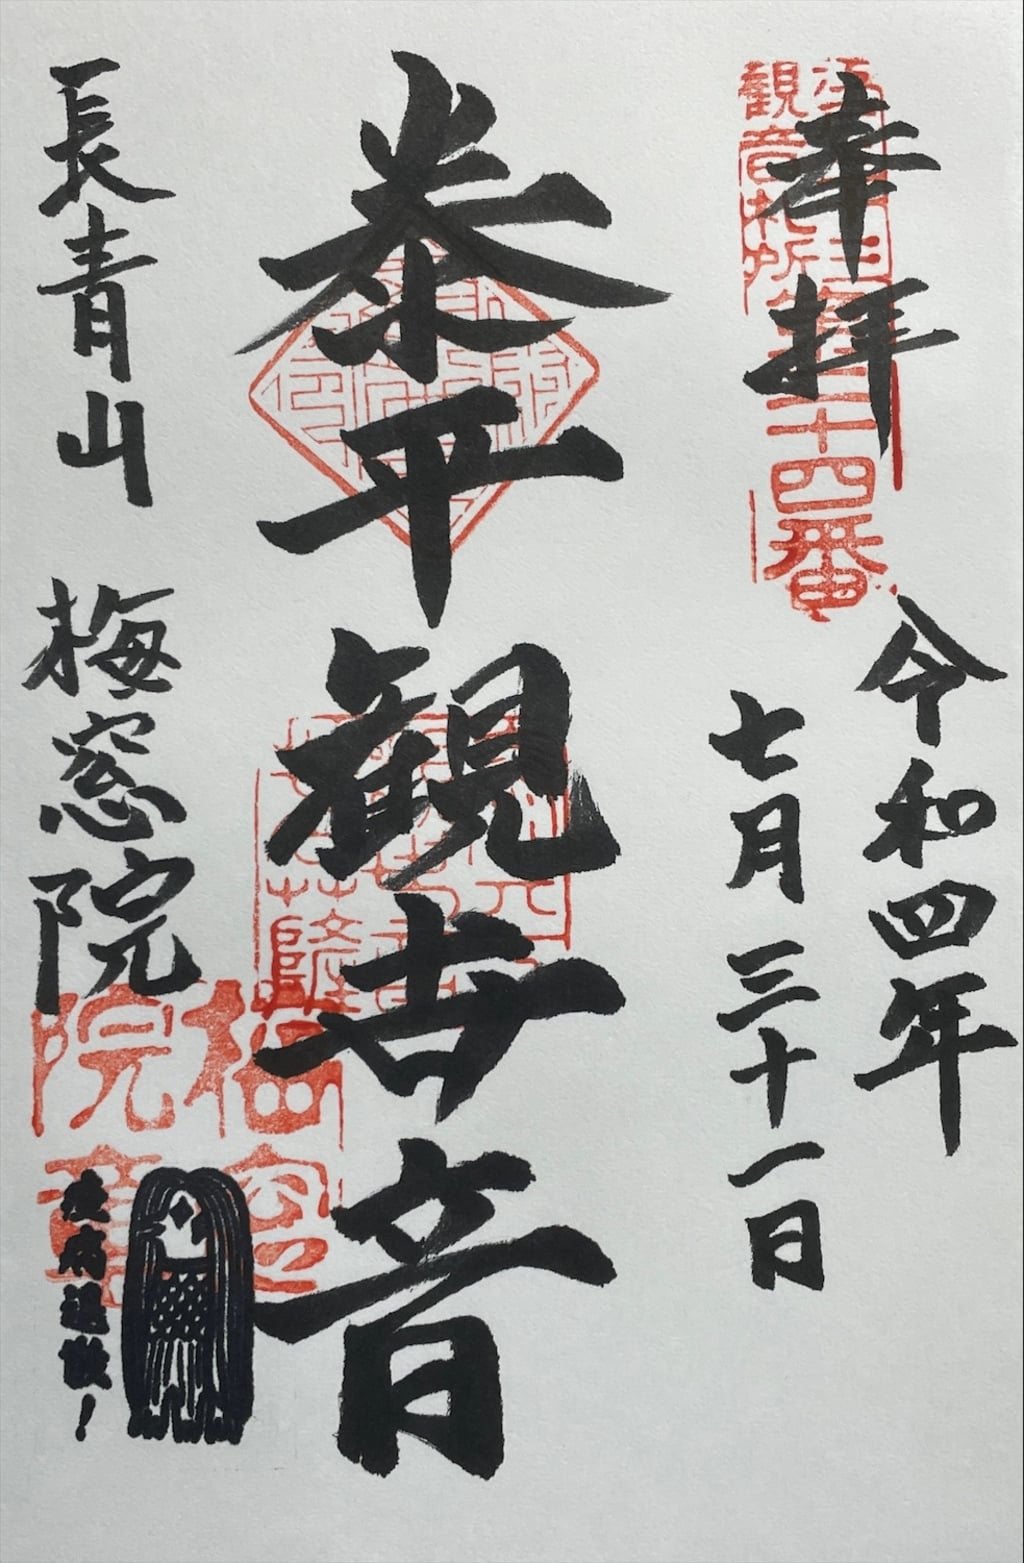 奉拝
観音札所
二十四番
令和四年
七月三十一日
泰平観世音
長青山 梅窓院
梅窓院章
疫病退散！